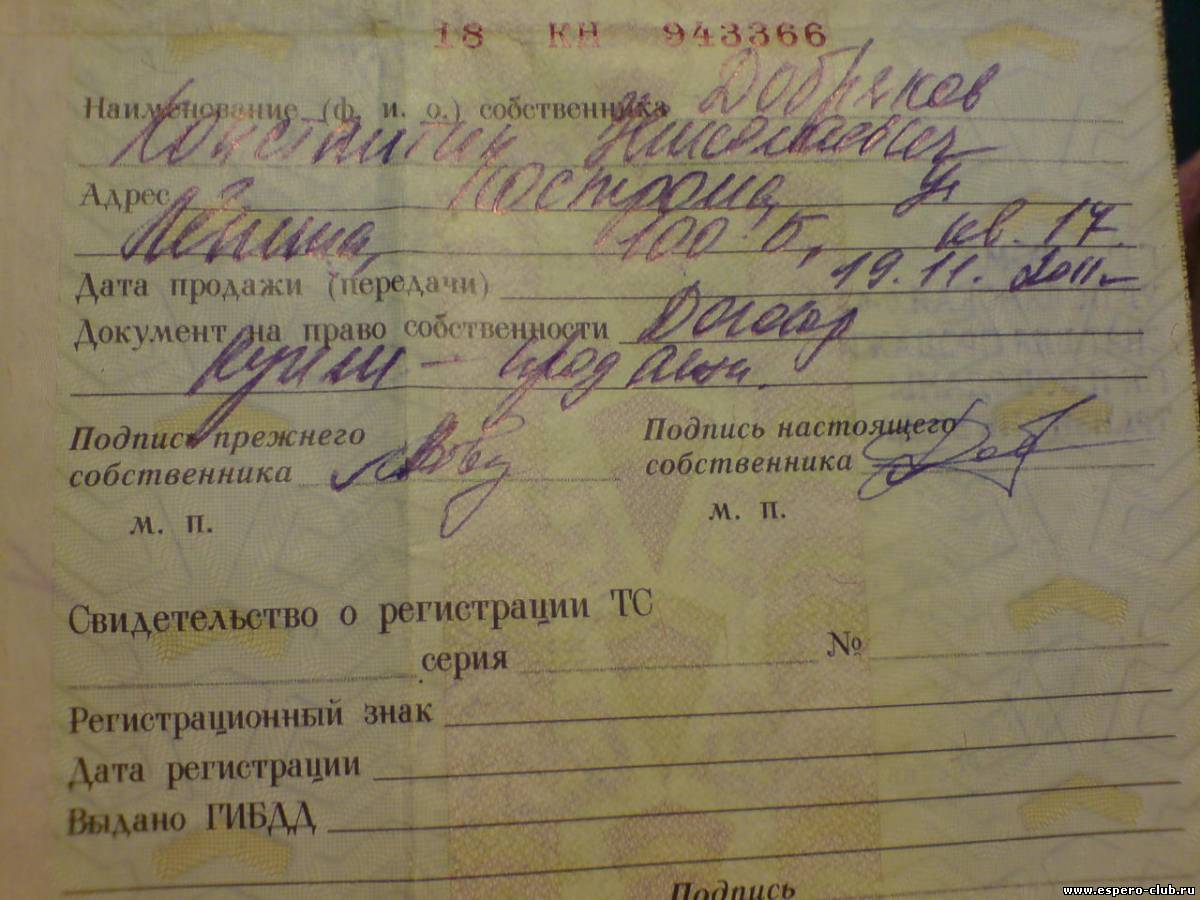 18 КН 943366
Наименование (ф. и. о.) собственника Добряков
Константин Николаевич
Адрес Кострома, ул
Ленина, 100 Б, кв. 17.
Дата продажи (передачи) 19.11.2011
Документ на право собственности Договор
купли - продажи.
Подпись прежнего
собственника
Подпись настоящего
собственника
м. п.
м. п.
Свидетельство о регистрации ТС
серия №
Регистрационный знак
Дата регистрации
Выдано ГИБДД
Подпись
www.espero-club.ru